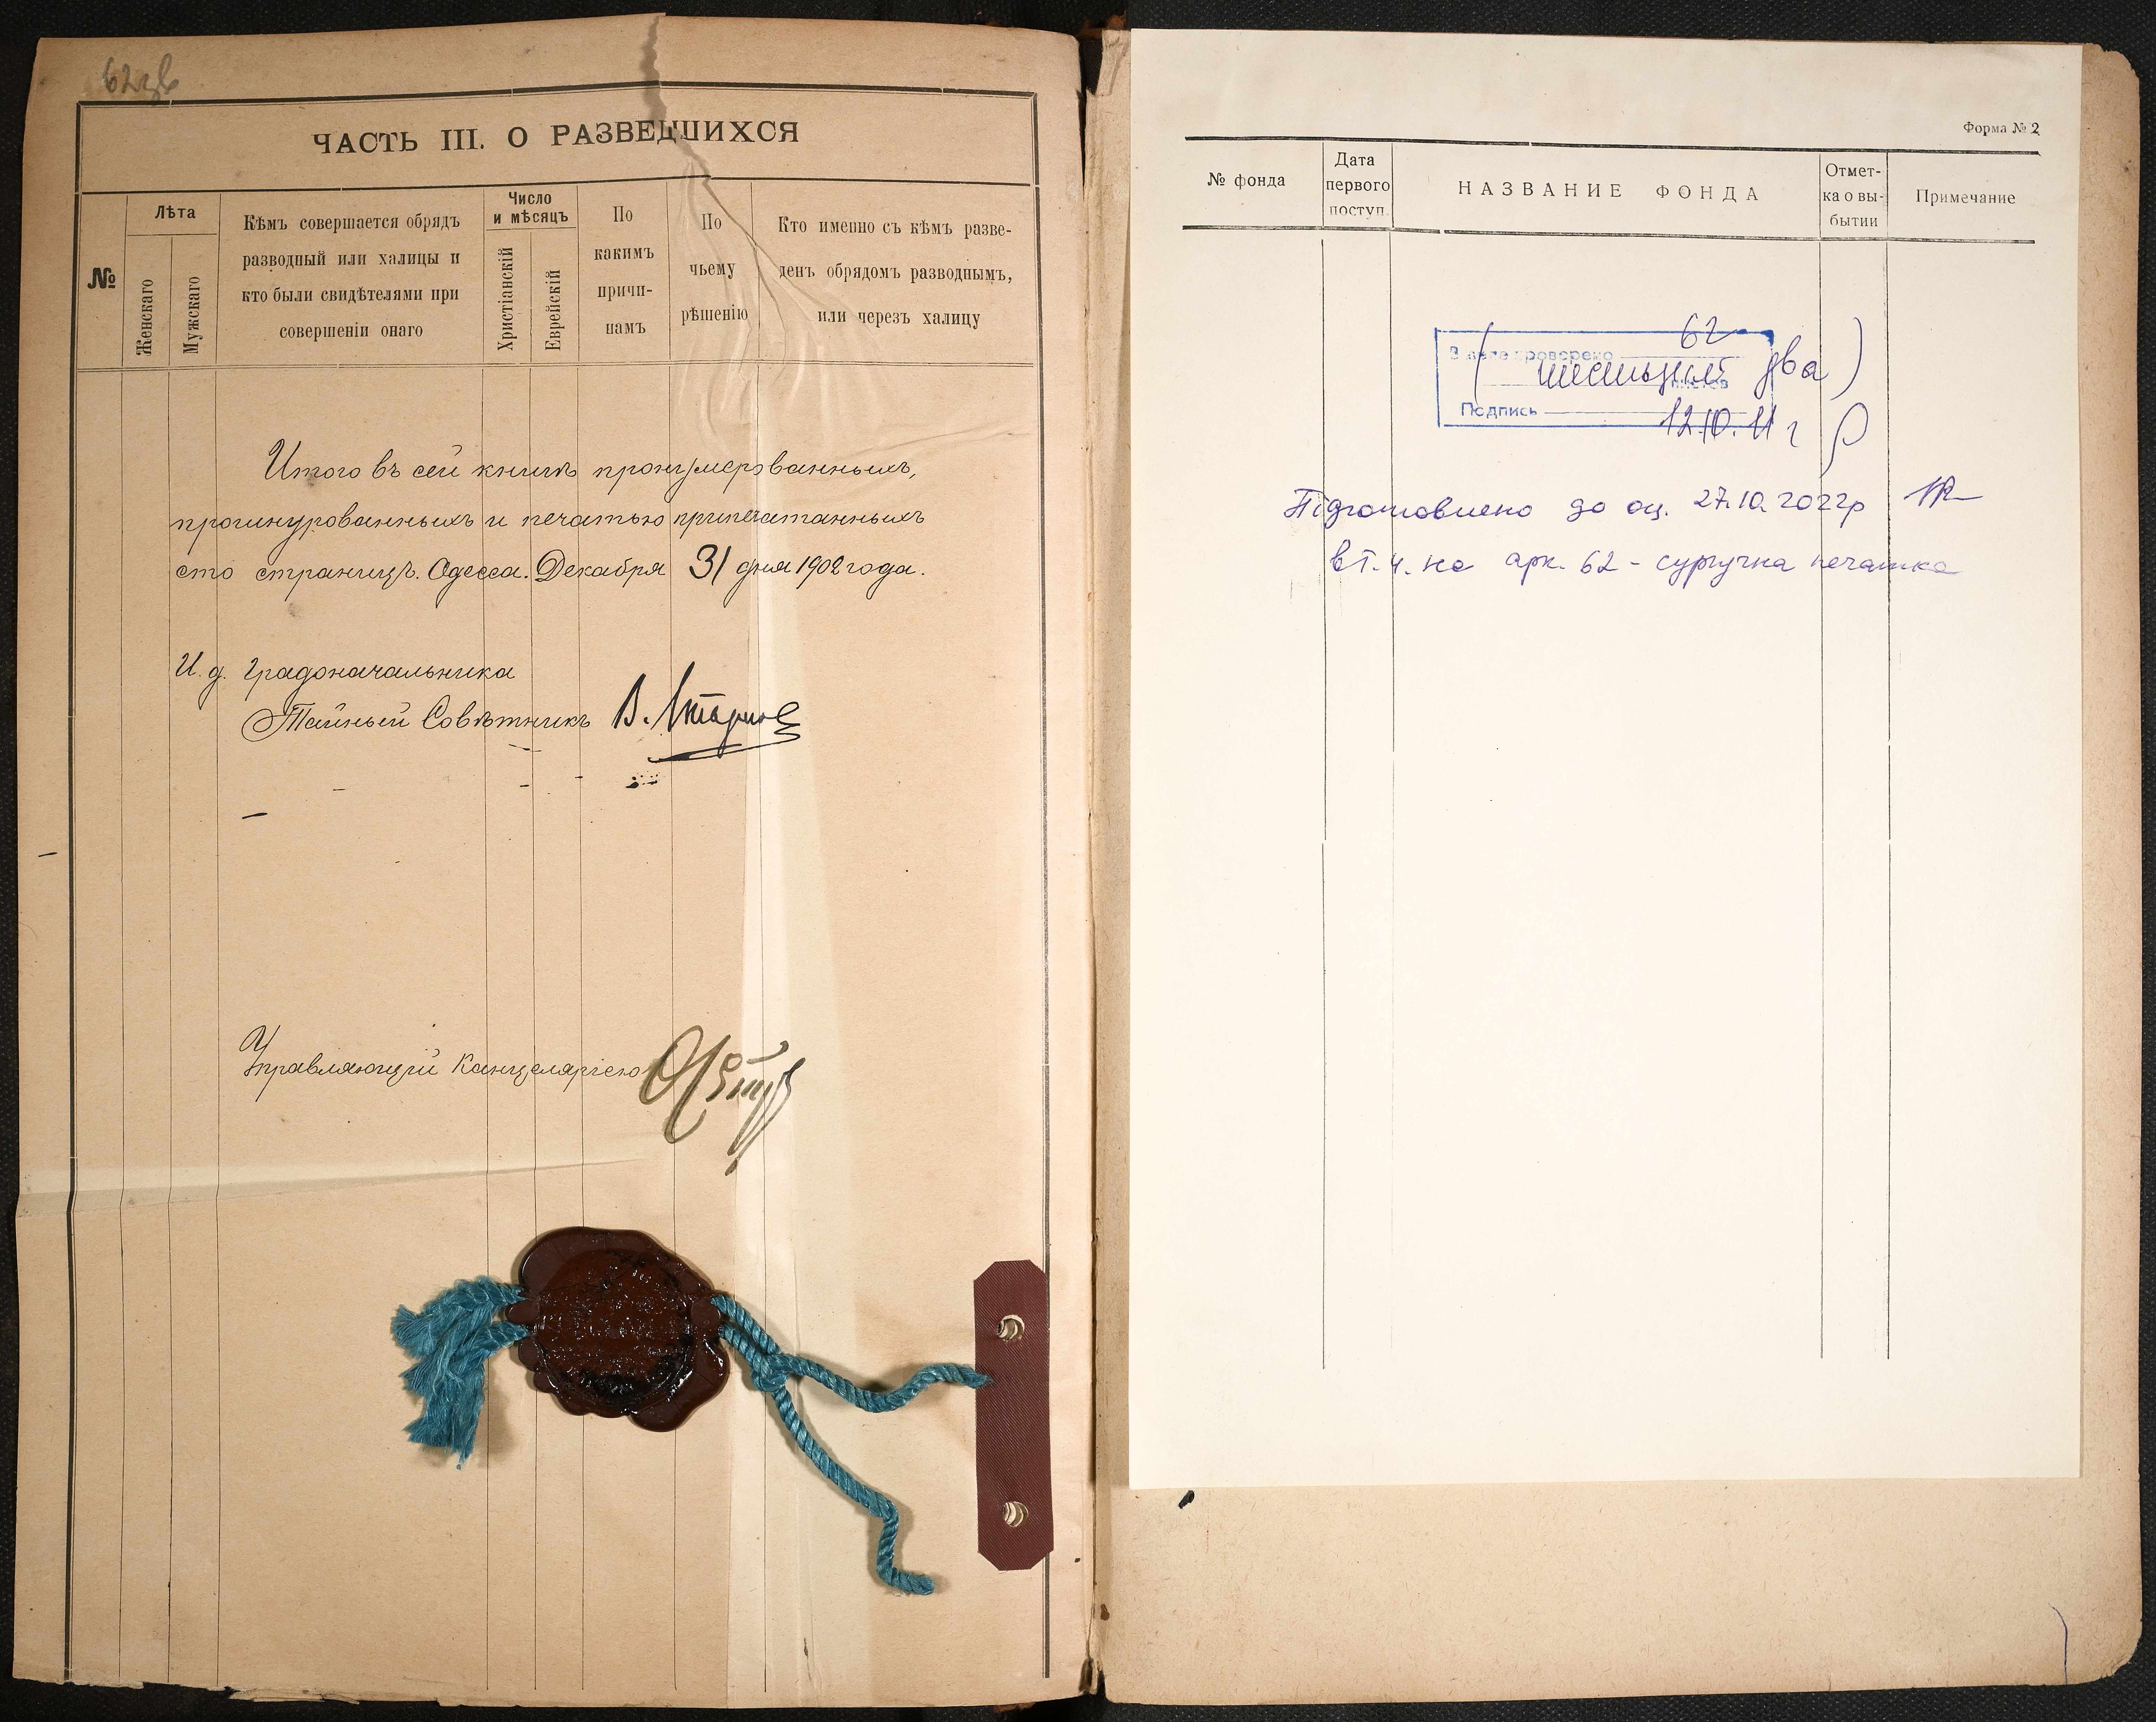 62зв
ЧАСТЬ III. О РАЗВЕДШИХСЯ
№
Лѣта
Женскаго
Мужскаго
Кѣмъ совершается обрядъ
разводный или халицы и
кто были свидѣтелями при
совершеніи онаго
Число
и мѣсяцъ
Христіанскій
Еврейскій
По
какимъ
причи-
намъ
По
чьему
рѣшенію
Кто именно съ кѣмъ разве-
денъ обрядомъ разводнымъ,
или черезъ халицу
Итого въ сей книгѣ пронумерованныхъ,
прошнурованныхъ и печатью припечатанныхъ
сто страницъ. Одесса. Декабря 31 дня 1902 года.
И. д. Градоначальника
Тайный Совѣтникъ В.
Управляющій Канцеляріею
Форма № 2
№ фонда
Дата
первого
поступ.
НАЗВАНИЕ ФОНДА
Отмет-
ка о вы-
бытии
Примечание
В деле проверено 62
(шестьдесят два)
листов
Подпись 12.10.11 г
Підготовлено до оц. 27.10.2022р
в т.ч. на арк. 62 - сургучна печатка